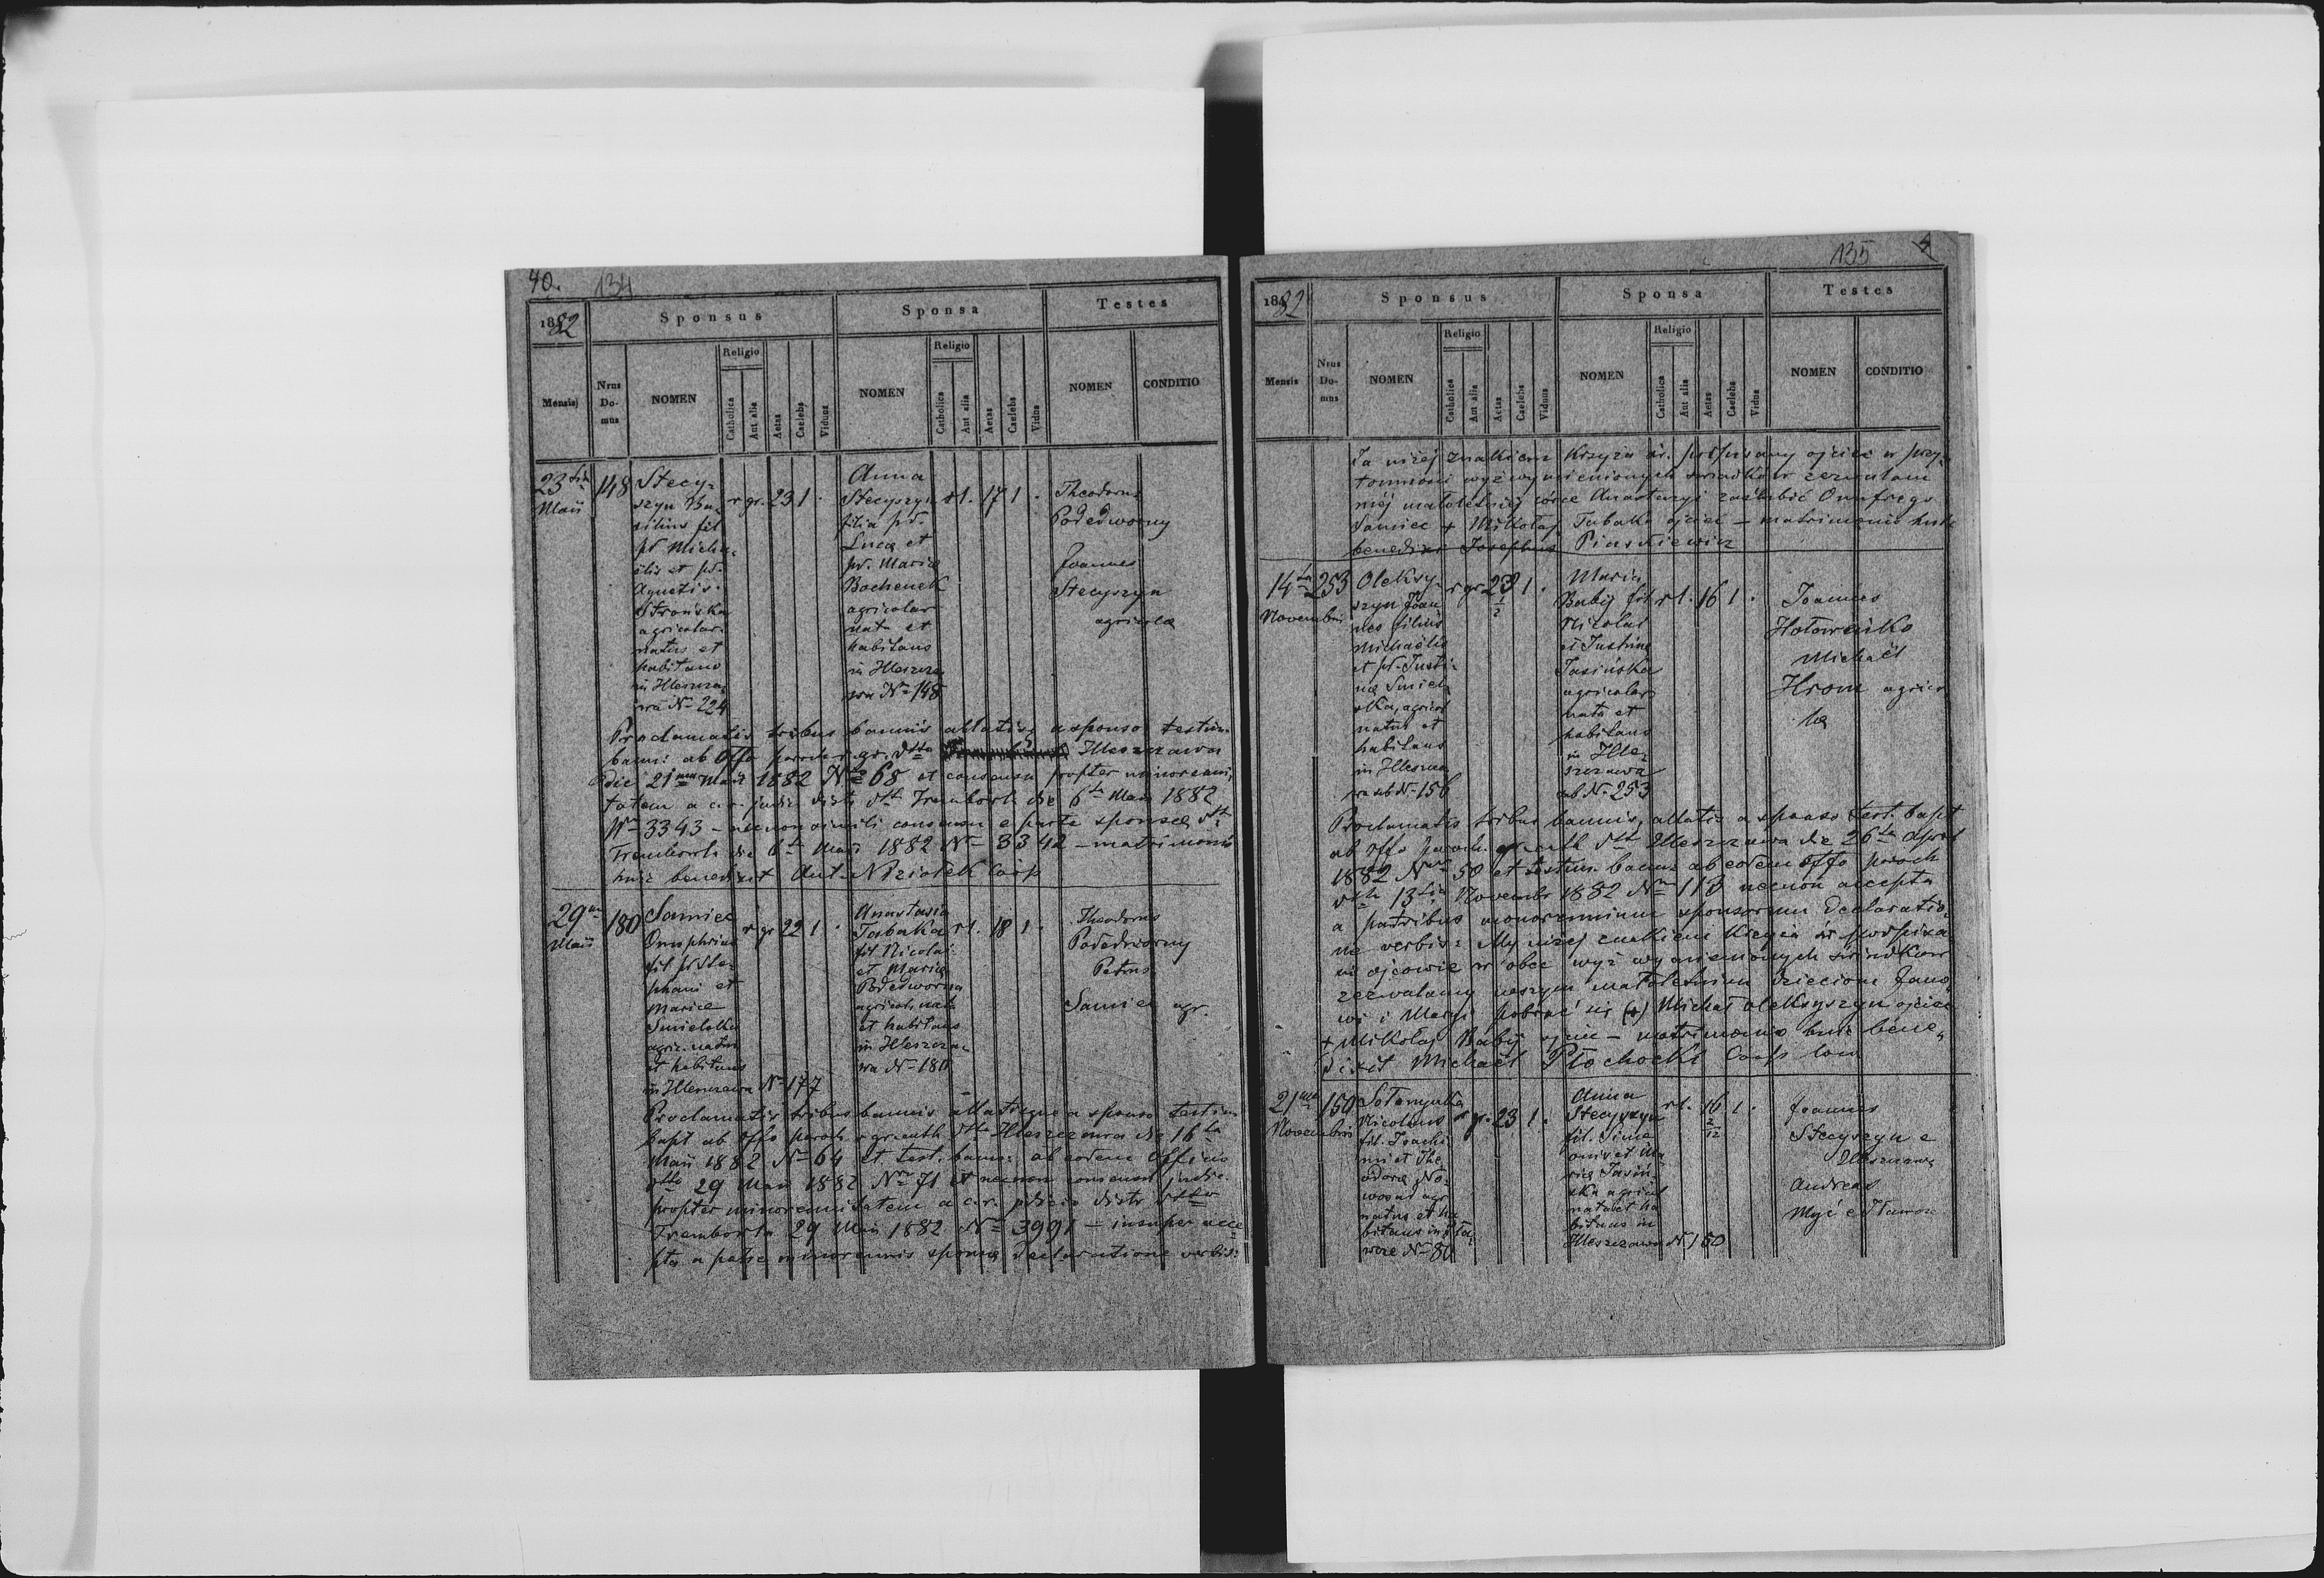 40. 134
1882 Sponsus Sponsa Testes
Mensis Nrus Domus NOMEN Religio Catholica Aut alia Aetas Caelebs Viduus NOMEN Religio Catholica Aut alia Aetas Caelebs Vidua NOMEN CONDITIO
23tia Maii
148
Stecy-
szyn Ba-
silius fil
pd Micha-
elis et pd.
Agnetis
Strońska
agricolar.
natus et
habitans
in Hleszcza-
wa N 224
r gr. 23 1 .
Anna
Stecyszyn
filia pd.
Lucæ et
pd. Maria
Bochenek
agricolar
nata et
habitans
in Hleszcza
wa N 148
rl. 17 1 .
Theodorus
Podedworny
Joannes
Stecyszyn
agricola
Proclamatis tribus bannis allatisq a sponso testim.
bann: ab Offo paroch r. gr. dtto Hleszczawa
die 21ma Maii 1882 N 68 et consensu propter minorenni-
tatem a c. r. judic distr dtt Trembowla die 6ta Maii 1882
N 3343 – necnon simili consensu e parte sponsæ dtt
Trembowla die 6ta Maii 1882 N 3342 – matrimonio
huic benedixit Ant. Niziołek Coop
29na Maii
180
Samiec
Onuphrius
fil pd Ste-
phani et
Mariæ
Smielska
agric. natus
et habitans
in Hleszczawa N 177
r gr 22 1 .
Anastasia
Tabaka
fil Nicolai
et Mariæ
Podedworna
agricol. nata
et habitans
in Hleszcza-
wa N 180
rl. 18 1 .
Theodorus
Podedworny
Petrus
Samiec agr.
Proclamatis tribus bannis allatisque a sponso testim
bapt ab Offo paroch r gr cath dtt Hleszczawa de 16ta
Maii 1882 N 64 et test. bann: ab eodem Officio
dtto 29 Maii 1882 N 71 et necnon consensu judic.
propter minorennitatem a c. r. judicio distr dtto
Trembowla 29 Maii 1882 N 3991 – insuper acce
pta a patre minorennis sponsæ declaratione verbis:
135
1882 Sponsus Sponsa Testes
Mensis Nrus Domus NOMEN Religio Catholica Aut alia Aetas Caelebs Viduus NOMEN Religio Catholica Aut alia Aetas Caelebs Vidua NOMEN CONDITIO
Ja niżej znakiem Krzyża śr. podpisany ojciec w przy-
tomności wyż wymienionych świadków zezwalam
mej małoletniej córce Anastazyi zaślubić Onufrego
Samiec + Mikołaj Tabaka ojciec – matrimonio huic
benedixi Josephus Piaskiewicz
14ta Novembris
253
Oleksy-
szyn Joan
nes filius
Michaëlis
et pd. Justi-
næ Smiel-
ska, agricol
natus et
habitans
in Hleszcza
wa sub N 156
r gr 23 1/2 1 .
Maria
Babij fil
Nicolai
et Justinæ
Jasińska
agricolar
nata et
habitans
in Hle-
szczawa
sub N 253
rl. 16 1 .
Joannes
Hołoweńko
Michaël
Hrom agrico
læ
Proclamatis tribus bannis, allatis a sponso test. bapt
ab Offo paroch. gr cath dtt Hleszczawa de 26ta April
1882 N 50 et testim bann: ab eodem Offo paroch
dtt 13tia Novembr 1882 N 118 necnon accepta
a patribus minorennium sponsorum declaratio-
ne verbis: My niżej znakiem Krzyża śr podpisa
ni ojcowie w obec wyż wymienionych świadków
zezwalamy naszym małoletnim dzieciom Jano-
wi i Maryi pobrać się (+) Michał Oleksyszyn ojciec
+ Mikołaj Babij ojciec – matrimonio huic bene-
dixit Michaël Płochocki Coop loci
21ma Novembris
150
Sołomyałka
Nicolaus
fil. Joachi
mi et The
odoræ No-
wosad agr
natus et ha
bitans in Iła-
wcze N 80
r gr. 23 1 .
Anna
Stecyszyn
fil. Sime
onis et Ma
riæ Jasiń-
ska agricol
nata et ha
bitans in
Hleszczawa N 150
rl. 16 2/12 1 .
Joannes
Stecyszyn e
Hleszczawa
Andreas
Myć e Iławcze